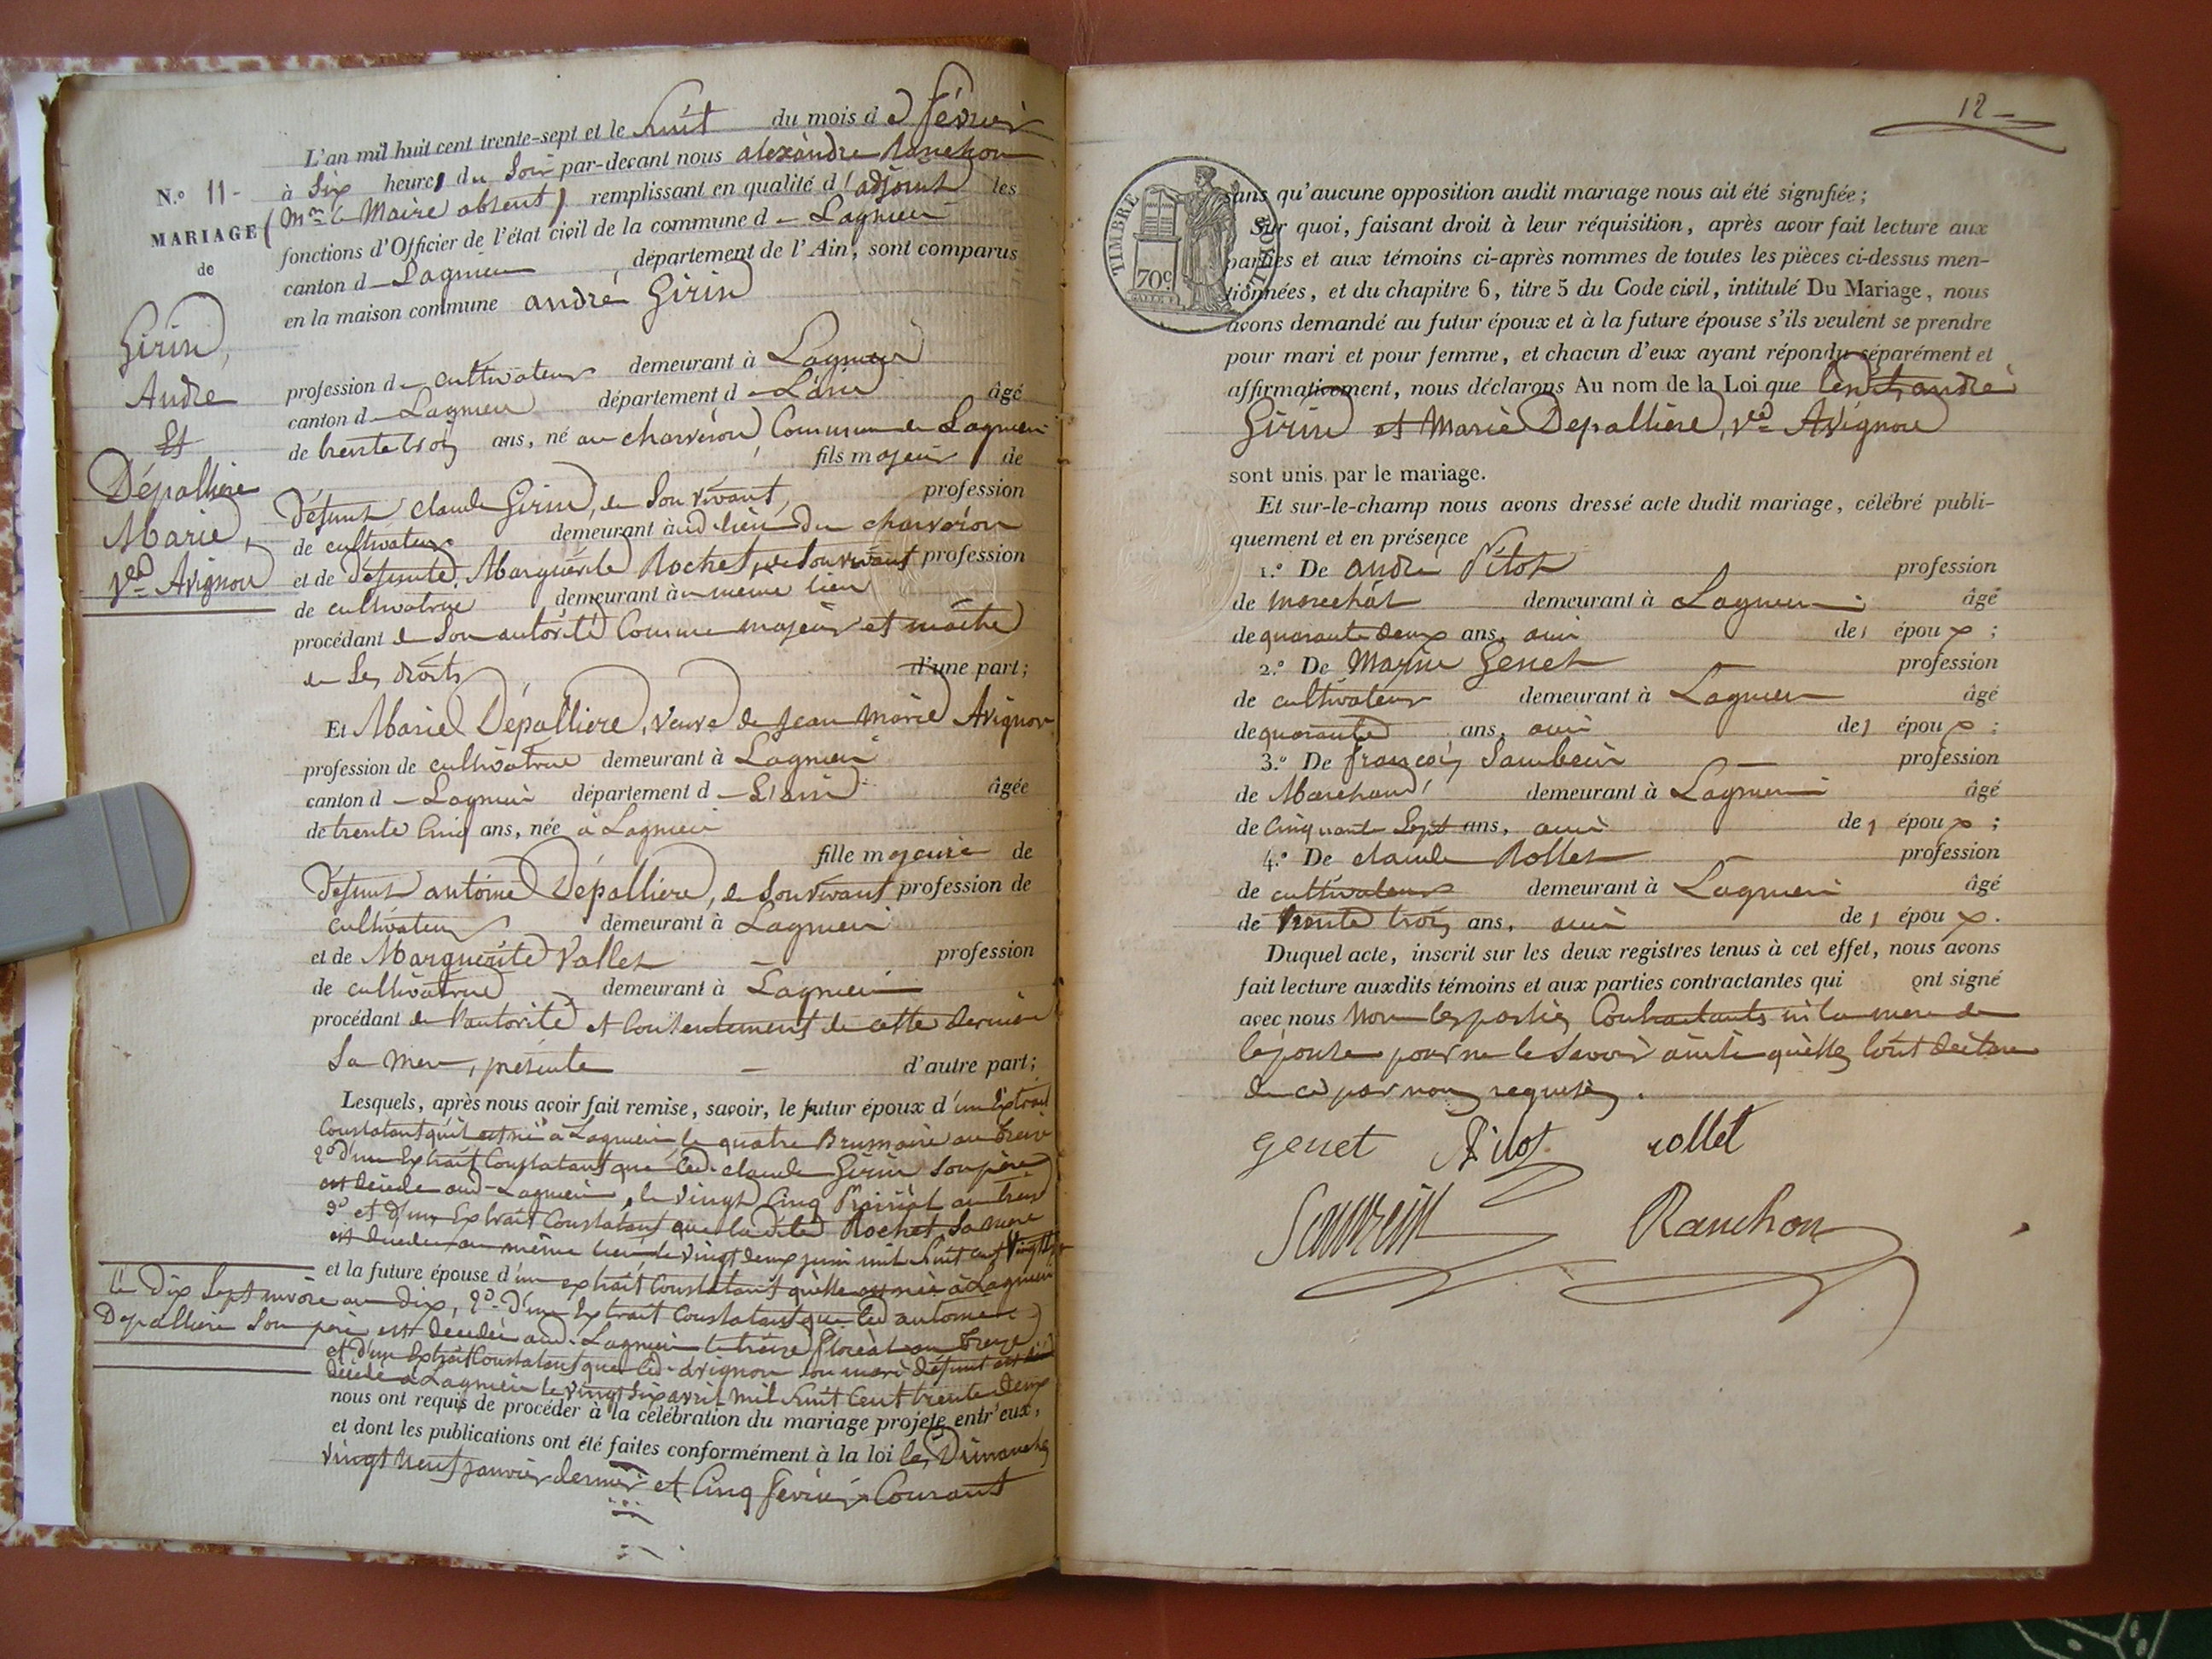 L'an mil huit cent trente-sept et le huit du mois d e février
à six heures du soir par-devant nous alexandre Ranchon
N.° 11 - (Mr le Maire absent) remplissant en qualité d'adjoint les
MARIAGE fonctions d'Officier de l'état civil de la commune d - Lagnieu
de canton d - Lagnieu , département de l'Ain, sont comparus
en la maison commune andré Girin
Girin,
Andre
Et
Dépallière
Marie,
Vve Avignon
profession d - cultivateur demeurant à Lagnieu
canton d - Lagnieu département d - L'ain âgé
de trente trois ans, né au charveron, Commune de Lagnieu
fils majeur de
défunt claude Girin, de son vivant, profession
de cultivateur demeurant aud. lieu du charveron
et de défunte Marguerite Rochet, de son vivant profession
de cultivatrice demeurant au meme lieu
procédant de son autorité Comme majeur et maître
de ses droits d'une part;
Et Marie Dépallière, veuve de Jean Marie Avignon
profession de cultivatrice demeurant à Lagnieu
canton d - Lagnieu département d - L'ain âgée
de trente cinq ans, née à Lagnieu
fille majeure de
défunt antoine Dépallière, de son vivant profession de
cultivateur demeurant à Lagnieu
et de Marguerite Vallet - profession
de cultivatrice demeurant à Lagnieu
procédant de l'autorité et Consentement de cette derniere
sa mere, présente - d'autre part;
Lesquels, après nous avoir fait remise, savoir, le futur époux d'un Extrait
Constatant qu'il est né à Lagnieu le quatre Brumaire an
2° d'un Extrait Constatant que led. claude Girin son père
est décédé aud. Lagnieu, le vingt cinq Prairial an
3° et d'un Extrait Constatant que la dite Rochet, sa mere
est decedee au même lieu le vingt deux juin mil huit cent
et la future épouse d'un extrait Constatant qu'elle est née à Lagnieu
le dix sept nivose an dix, 2° d'un Extrait Constatant que led. antoine
Depallière son père est decedé aud. Lagnieu le treize floréal an treize
et d'un Extrait Constatant que led. avignon son mari défunt est
décédé à Lagnieu le vingt six avril mil huit Cent trente deux
nous ont requis de procéder à la célébration du mariage projeté entr'eux,
et dont les publications ont été faites conformément à la loi les Dimanches
vingt neuf janvier dernier et Cinq février Courant
12 -
TIMBRE ROYAL
70c
sans qu'aucune opposition audit mariage nous ait été signifiée;
Sur quoi, faisant droit à leur réquisition, après avoir fait lecture aux
parties et aux témoins ci-après nommes de toutes les pièces ci-dessus men-
tionnées, et du chapitre 6, titre 5 du Code civil, intitulé Du Mariage, nous
avons demandé au futur époux et à la future épouse s'ils veulent se prendre
pour mari et pour femme, et chacun d'eux ayant répondu séparément et
affirmativement, nous déclarons Au nom de la Loi que lesdits andré
Girin et Marie Depallière, Vve Avignon
sont unis par le mariage.
Et sur-le-champ nous avons dressé acte dudit mariage, célébré publi-
quement et en présence
1.° De andré Pitot profession
de marechal demeurant à Lagnieu âgé
de quarante deux ans, ami des époux ;
2.° De Marin Genet profession
de cultivateur demeurant à Lagnieu âgé
de quarante ans, ami des époux ;
3.° De françois profession
de Marchand demeurant à Lagnieu âgé
de Cinquante Sept ans, ami des époux ;
4.° De claude Rollet profession
de cultivateur demeurant à Lagnieu âgé
de trente trois ans, ami des époux.
Duquel acte, inscrit sur les deux registres tenus à cet effet, nous avons
fait lecture auxdits témoins et aux parties contractantes qui ont signé
avec nous non les parties Contractants ni la mere de
l'épouse pour ne le savoir ainsi qu'elles l'ont déclaré
de ce par nous requises.
genet Pitot rollet
Ranchon